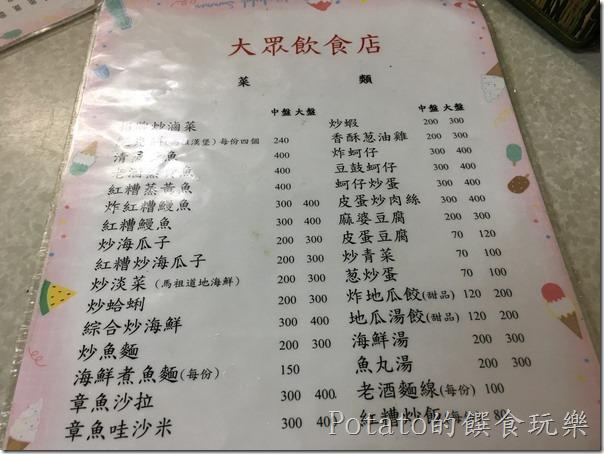 大眾飲食店
菜 類
中盤 大盤
炒滷菜
漢堡)每份四個 240
清 魚 400
老酒 魚 400
紅糟蒸黃魚 400
炸紅糟鰻魚 300 400
紅糟鰻魚 300 400
炒海瓜子 200 300
紅糟炒海瓜子 200 300
炒淡菜(馬祖道地海鮮) 200 300
炒蛤蜊 200 300
綜合炒海鮮 300 400
炒魚麵 200 300
海鮮煮魚麵(每份) 150
章魚沙拉 300 400
章魚哇沙米 300 400
中盤 大盤
炒蝦 200 300
香酥蔥油雞 200 300
炸蚵仔 300 400
豆鼓蚵仔 300 400
蚵仔炒蛋 300 400
皮蛋炒肉絲 300 400
麻婆豆腐 200 300
皮蛋豆腐 70 120
炒青菜 70 100
蔥炒蛋 70 100
炸地瓜餃(甜品) 120 200
地瓜湯餃(甜品) 120 200
海鮮湯 200 300
魚丸湯 200 300
老酒麵線(每份) 100
紅糟炒飯(每份) 80
Potato的饌食玩樂